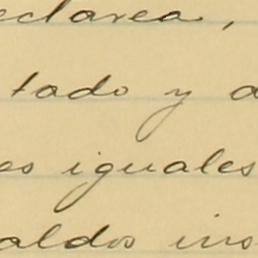 eclarea,
tado y a
es iguales
aldos ins